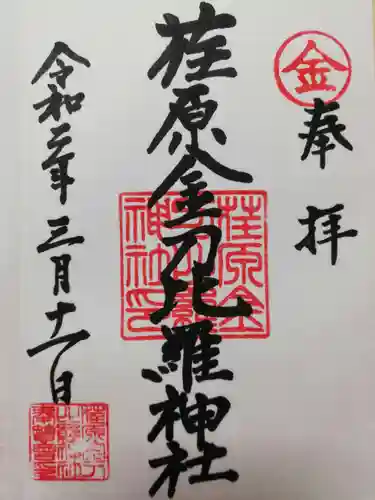 金
奉拝
荏原金刀比羅神社
荏原金
刀比羅
神社印
令和二年三月十一日
荏原金刀
比羅神社
奉賛会印